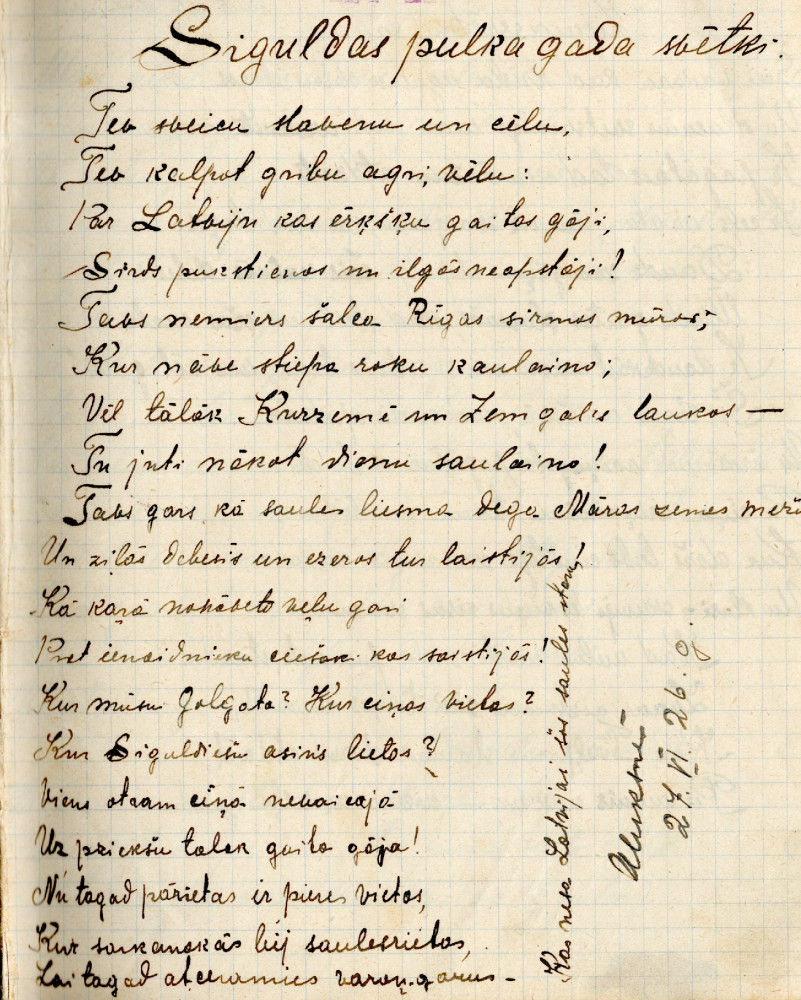 Siguldas pulka gada svētki.
Tev sveicu slavenu un cēlu,
Tev kalpot gribu agri, vēlu:
Par Latviju kas ērkšķu gaitas gāji,
Sirds pukstienos un ilgās neapstāji!
Tavs nemiers šalca Rīgas sirmos mūros,
Kur nāve stiepa roku kaulaino;
Vēl tālāk Kurzemē un Zemgales laukos —
Tu juti nākot dienu saulaino!
Tavs gars kā saules liesma dega Māras zemes
Un zilās debesīs un ezeros tur laistījās!
Kā kaŗā nokāveto veļu gari
Pret ienaidnieku ciešāki kas saistījās!
Kur mūsu Golgata? Kur ciņas vietas?
Kur Siguldiešu asinis lietas?
Viens otram ciņā nevaicājā
Uz priekšu tālāk gaita gāja!
Nu tagad pārietas ir pieres vietas,
Kur sarkanākās bij saulesrietas,
Lai tagad atceramies varoņgarus –
Kas nesa Latvijai šos saules starus
Alūksnē
27. VI. 26. g.